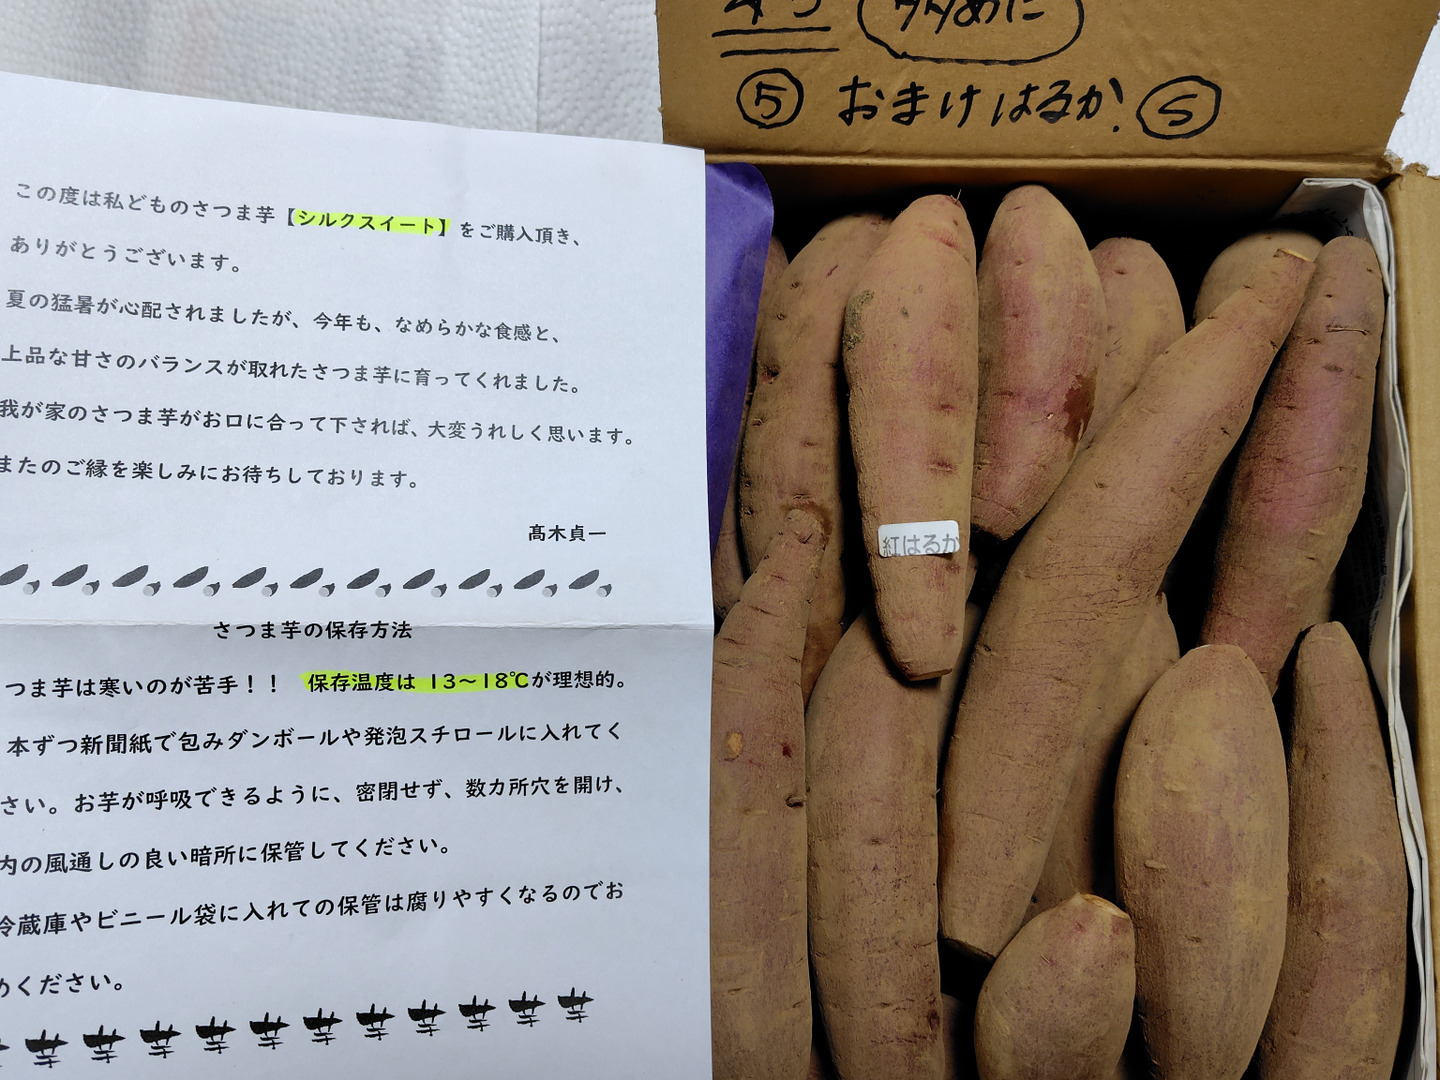 多めに
⑤ おまけはるか! Ⓢ
この度は私どものさつま芋【シルクスイート】をご購入頂き、
ありがとうございます。
夏の猛暑が心配されましたが、今年も、なめらかな食感と、
上品な甘さのバランスが取れたさつま芋に育ってくれました。
我が家のさつま芋がお口に合って下されば、大変うれしく思います。
またのご縁を楽しみにお待ちしております。
髙木貞一
さつま芋の保存方法
つま芋は寒いのが苦手!! 保存温度は 13~18℃が理想的。
本ずつ新聞紙で包みダンボールや発泡スチロールに入れてく
さい。お芋が呼吸できるように、密閉せず、数カ所穴を開け、
内の風通しの良い暗所に保管してください。
冷蔵庫やビニール袋に入れての保管は腐りやすくなるのでお
めください。
芋 芋 芋 芋 芋 芋 芋 芋 芋 芋 芋
紅はるか